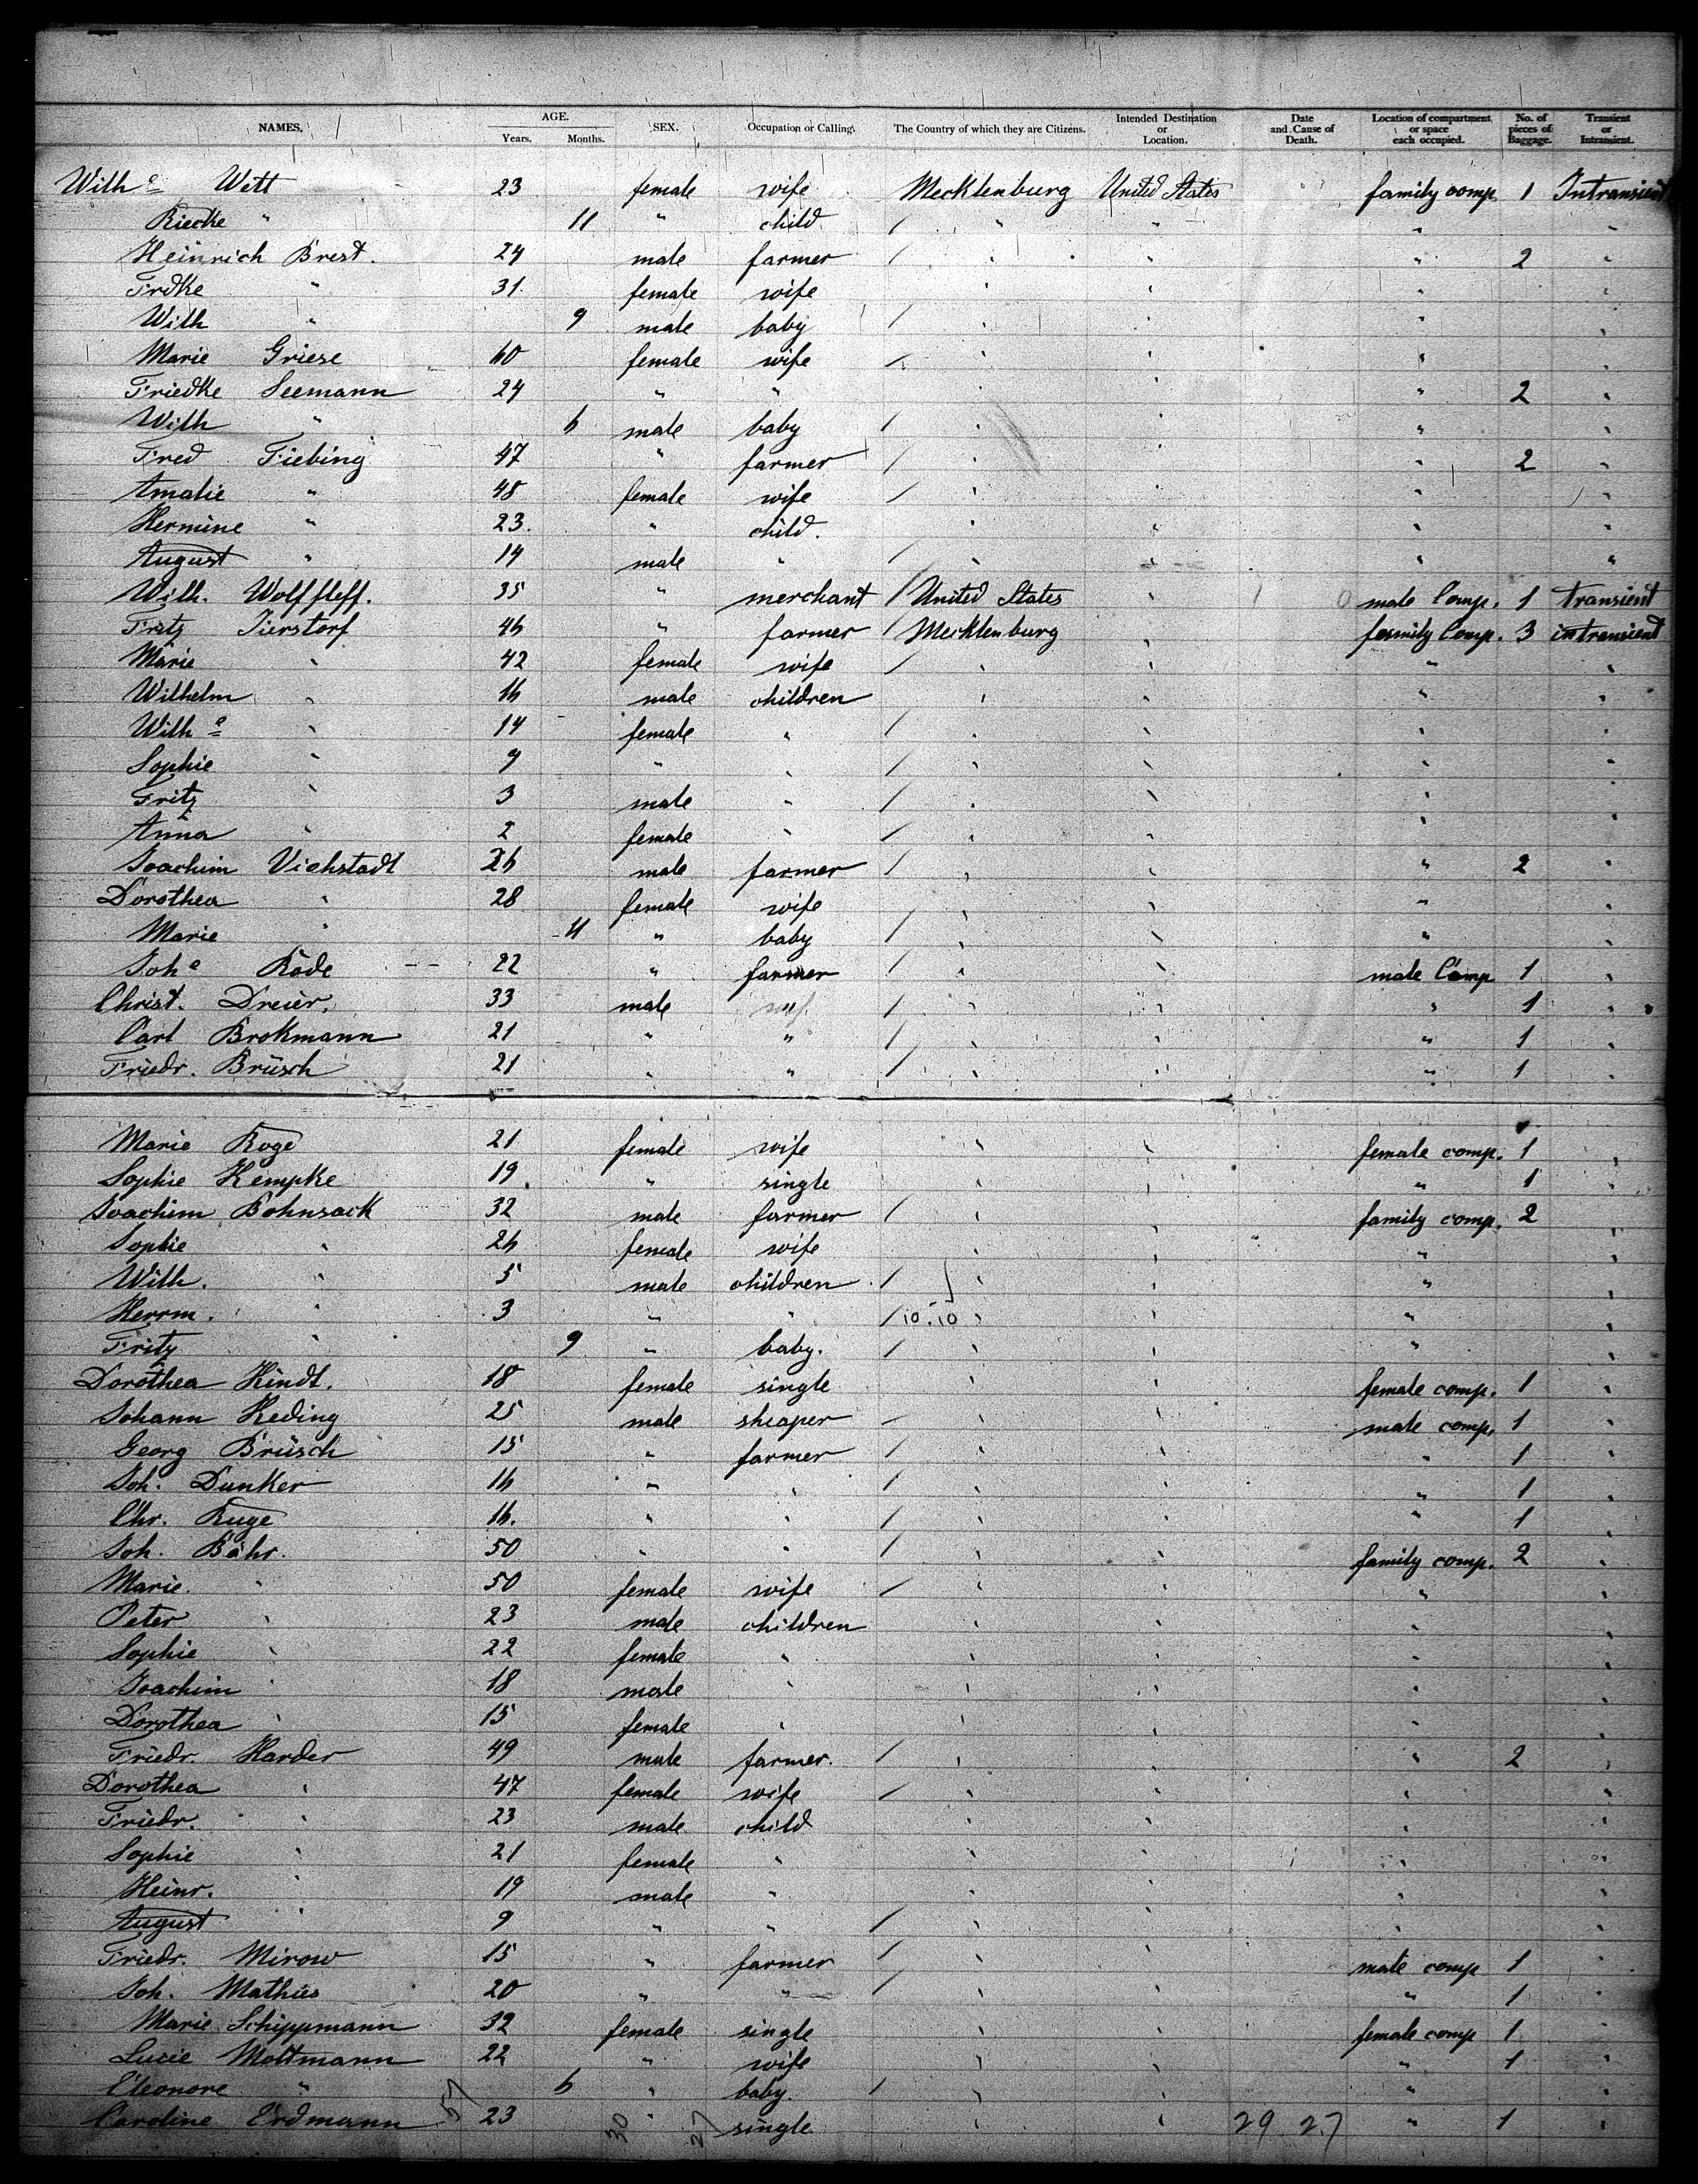 NAMES. AGE. SEX. Occupation or Calling. The Country of which they are Citizens. Intended Destination or Location. Date and Cause of Death. Location of compartment or space each occupied. No. of pieces of Baggage. Transient or Intransient.
Years. Months.
Wilh e Witt 23 female wife Mecklenburg United States family comp 1 Intransient
Riecke " 11 " child " " " "
Heinrich Brest. 24 male farmer " " " 2 "
Frdke " 31. female wife " " " "
Wilh " 9 male baby " " " "
Marie Griese 60 female wife " " " "
Friedke Seemann 24 " " " " " 2 "
Wilh " 6 male baby " " " "
Fred Fiebing 47 " farmer " " " 2 "
Amalie " 48 female wife " " " "
Hermine " 23. " child. " " " "
August " 14 male " " " " "
Wilh. Wolffleff. 35 " merchant United States " male Comp. 1 transient
Fritz Tierstorf 46 " farmer Mecklenburg " family Comp. 3 intransient
Marie " 42 female wife " " " "
Wilhelm " 16 male children " " " "
Wilh e " 14 female " " " " "
Sophie " 9 " " " " " "
Fritz " 3 male " " " " "
Anna " 2 female " " " " "
Joachim Viehstadt 26 male farmer " " " 2 "
Dorothea " 28 female wife " " " "
Marie " 11 " baby " " " "
Joh e Rode 22 " farmer " " male Comp 1 "
Christ. Dreier. 33 male " " " 1 "
Carl Brokmann 21 " " " " " 1 "
Friedr. Brüsch 21 " " " " " 1 "
Marie Roge 21 female wife " " female comp. 1 "
Sophie Kempke 19. " single " " " 1 "
Joachim Bohnsack 32 male farmer " " family comp. 2 "
Sophie " 26 female wife " " " "
Wilh. " 5 male children " " " "
Herrm. " 3 " " 10.10 " " " "
Fritz " 9 " baby. " " " "
Dorothea Hindt. 18 female single " " female comp. 1 "
Johann Keding 25 male sheaper " " male comp. 1 "
Georg Brüsch 15 " farmer " " " 1 "
Joh. Dunker 16 " " " " " 1 "
Chr. Ruge 16. " " " " " 1 "
Joh. Bähr. 50 " " " " family comp. 2 "
Marie. " 50 female wife " " " "
Peter " 23 male children " " " "
Sophie " 22 female " " " " "
Joachim " 18 male " " " " "
Dorothea " 15 female " " " " "
Friedr. Harder 49 male farmer. " " " 2 "
Dorothea " 47 female wife " " " "
Friedr. " 23 male child " " " "
Sophie " 21 female " " " " "
Heinr. " 19 male " " " " "
August " 9 " " " " " "
Friedr. Mirow 15 " farmer " " male comp 1 "
Joh. Mathies 20 " " " " " 1 "
Marie Schippmann 32 female single " " female comp 1 "
Lucie Moltmann 22 " wife " " " 1 "
Eleonore " 6 " baby. " " " "
Caroline Erdmann 57 23 30 " 27 single " " 29 27 " 1 "